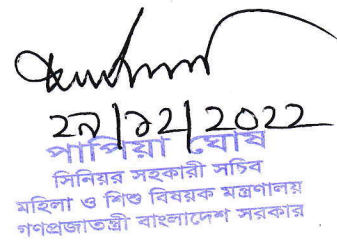 ২৯/১২/২০২২
পাপিয়া ঘোষ
সিনিয়র সহকারী সচিব
মহিলা ও শিশু বিষয়ক মন্ত্রণালয়
গণপ্রজাতন্ত্রী বাংলাদেশ সরকার